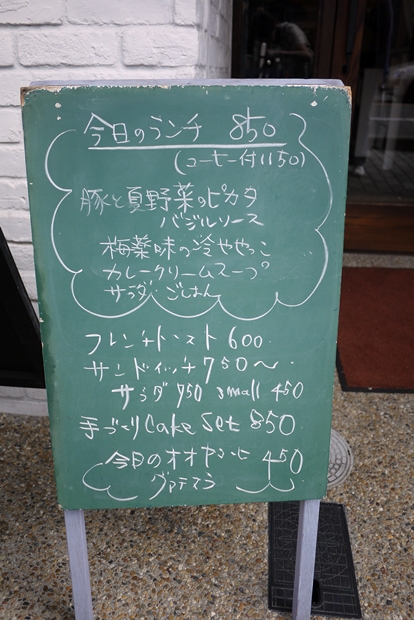 今日のランチ 850
(コーヒー付1150)
豚と夏野菜のピカタ
バジルソース
梅薬味の冷ややっこ
カレークリームスープ
サラダ ごはん
フレンチトースト 600
サンドイッチ 750〜
サラダ 750 small 450
手づくりCake Set 850
今日のオオヤコーヒ 450
グァテマラ